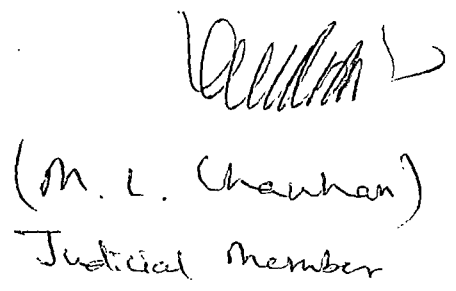 (M. L. Chauhan)
Judicial Member